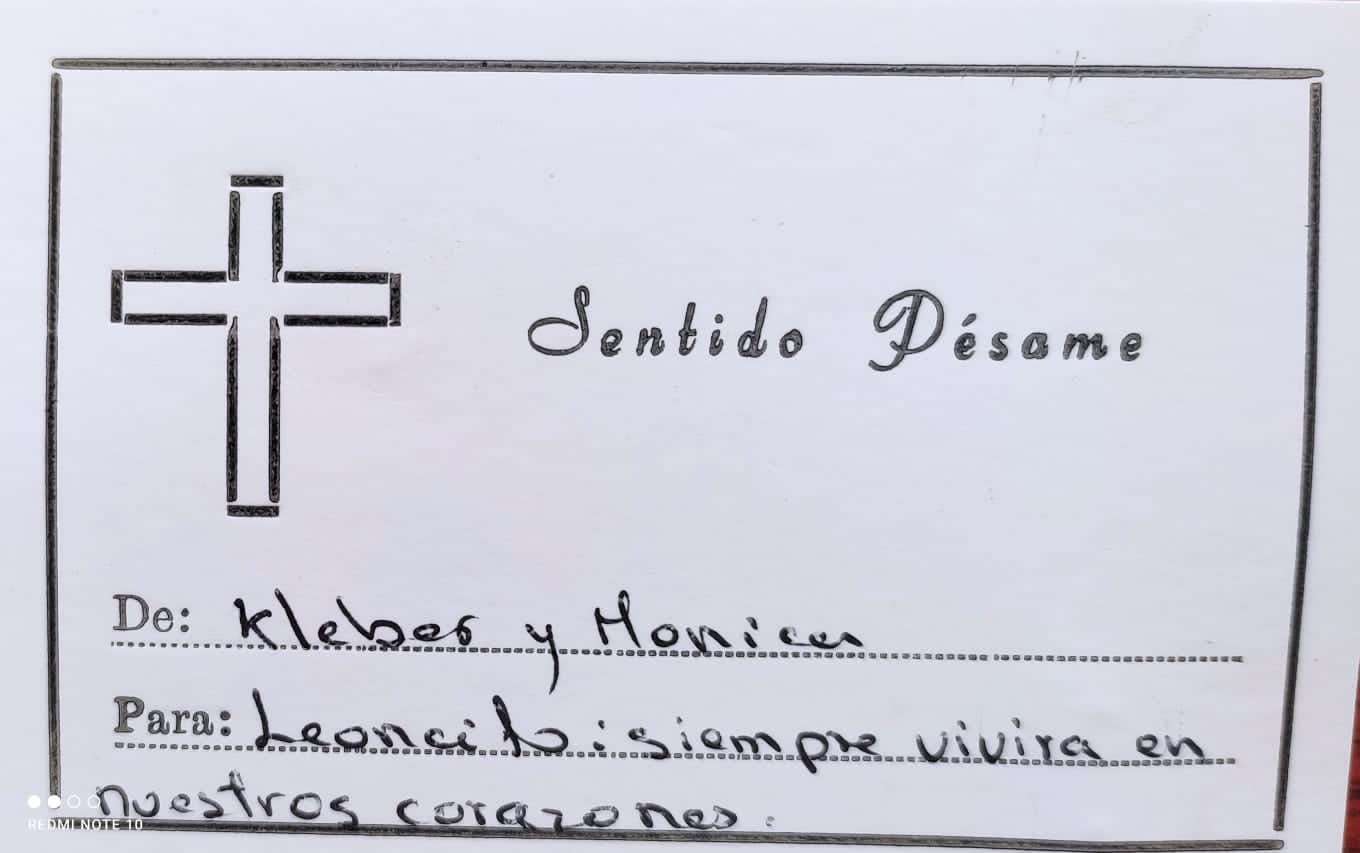 Sentido Pésame
De: Kleber y Monica
Para: Leoncito: siempre vivira en
nuestros corazones.
REDMI NOTE 10